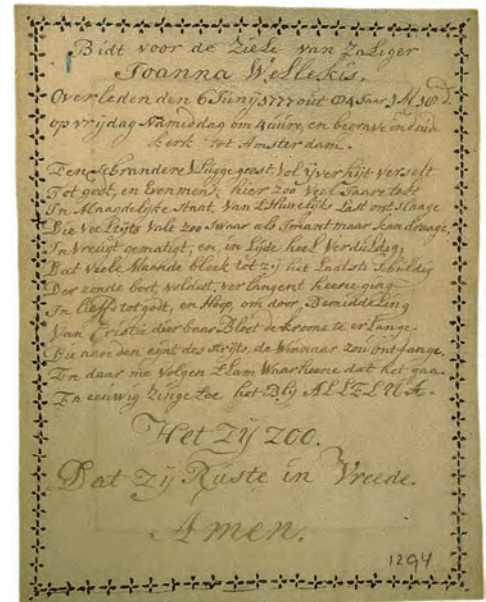 Bidt voor de Ziele van Zaliger
Joanna Wellekis.
Overleden den 6 Junij 1777 out 84 Jaar 1 M 10 d.
op vrijdag Namiddag om 4 uure, en begrave in d'oude
kerk tot Amsterdam.
Een Vol ijver
Tot godt, en Evenmens, hier zoo veel Jaare
In Maagdelijke Staat, van t Huwelijks Last ontslaage
Die Vee zoo Swaar als Jemant maar kan draage,
In Vreugt gematigt, en, in Lijde heel Verduldig,
Dat Veele Maande bleek tot zij het Laatste Schuldig
Der zonde boet, voldeet, verlangent heene ging
In Lieffd tot godt, en Hoop, om door Bemiddeling
Van Cristie dierbaar Bloet de kroone te erlange.
Die aan den eijnt des strijts, de Winnaar zou ontfange.
En daar me Volgen t Lam Waar heene dat het gaa.
En eeuwig Zinge toe het Blij ALLELUJA.
Het Zij Zoo.
Dat Zij Ruste in Vreede.
Amen.
1294